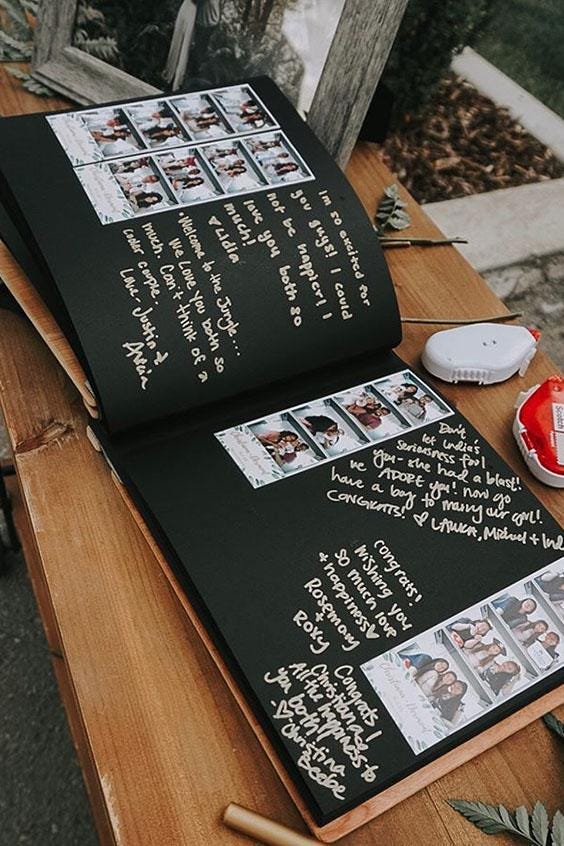 im so excited for
you guys! I could
not be happier! I
love you both so
much!
♥ Lidia
Welcome to the Jungle...
We Love you both so
much. Can't think of a
cooler couple.
Love Justin +
Don't
let India's
seriousness fool
you - she had a blast!
ADORE you! now go
have a boy to marry our girl!
CONGRATS! ♥ Michael + Ind
Congrats!
Wishing you
so much love
+ happiness ♥
Rosemary
+
Roxy
Congrats!
All the happiness to
you both!
♥ Christina
Beebe
Scotch